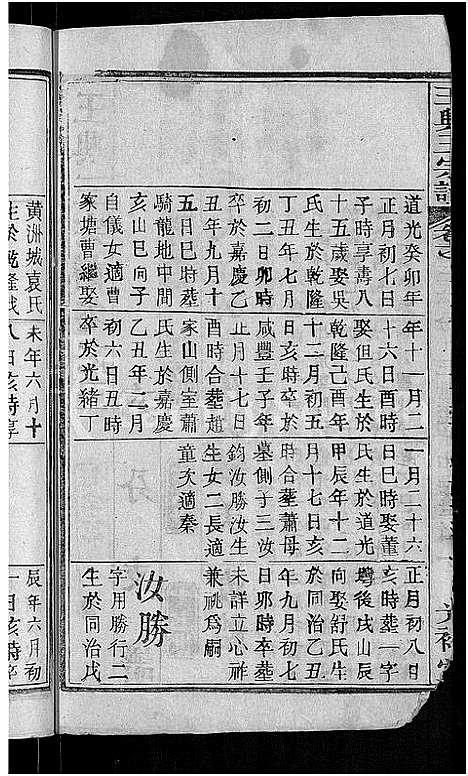 宗譜
道光癸卯年
正月初七日
子時享壽八
十五歲娶吳
氏生於乾隆
丁丑年七月
初二日卯時
卒於嘉慶乙
丑年九月十
五日巳時葬
騎龍地中間
亥山巳向子
自儀女適曹
家塘曹繼娶
年十一月二
十六日酉時
娶但氏生於
乾隆己酉年
十二月初五
日亥時卒於
咸豐壬子年
正月十七日
酉時合葬趙
家山側室蕭
氏生於嘉慶
乙丑年二月
初六日丑時
卒於光緒丁
一月二十六
日巳時娶董
氏生於道光
甲辰年十二
月十七日亥
時合葬蕭母
墓側子三汝
鈞汝勝汝生
生女二長適
童次適秦
正月初八日
亥時葬一字
後戌山辰
向娶舒氏生
於同治乙丑
年九月初七
日卯時卒葬
未詳立心
兼祧爲嗣
汝勝
字用勝行二
生於同治戊
黃洲城袁氏
生於乾隆戊
未年六月十
八日亥時享
辰年六月初
一日亥時卒